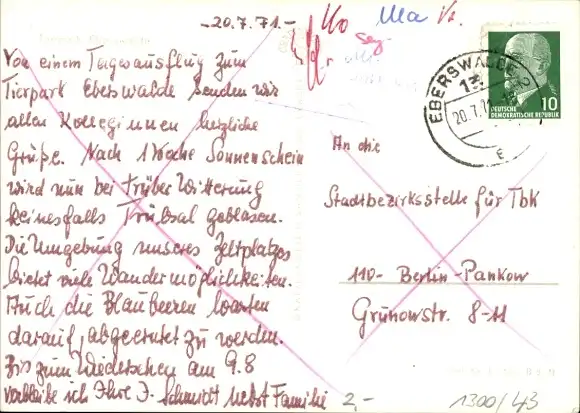 -20.7.71.-
Von einem Tagesausflug zum
Tierpark Eberswalde senden wir
allen Kolleginnen herzliche
Grüße. Nach 1 Woche Sonnenschein
wird nun bei trüber Witterung
keinesfalls Trübsal geblasen.
Die Umgebung unseres Zeltplatzes
bietet viele Wandermöglichkeiten.
Auch die Blaubeeren warten
darauf, abgeerntet zu werden.
Bis zum Wiedersehen am 9.8
verbleibe ich Ihre J. Schmidt nebst Familie
EBERSWALDE 2
13
20.7.71
e
10
DEUTSCHE
DEMOKRATISCHE REPUBLIK
An die
Stadtbezirksstelle für Tbk
110- Berlin-Pankow
Grunowstr. 8-11
2,-
1300/43